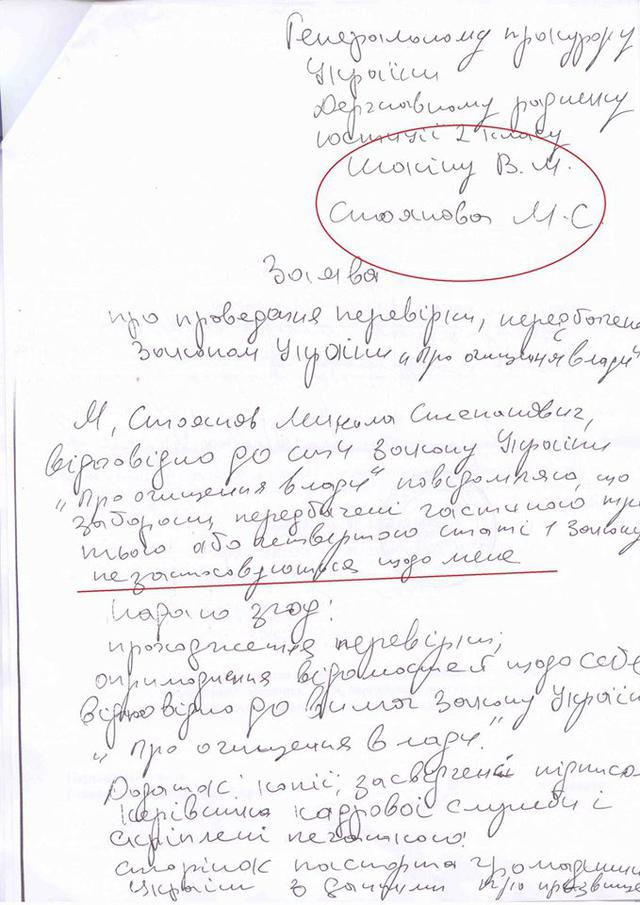 Генеральному прокурору
України
Державному раднику
юстиції 2 класу
Шокіну В.М.
Стоянова М.С.
Заява
про проведення перевірки, передбаченої
Законом України „Про очищення влади"
Я, Стоянов Микола Степанович,
відповідно до ст.4 Закону України
„Про очищення влади" повідомляю, що
заборони, передбачені частиною тре
тьою або четвертою статті 1 Закону
не застосовуються щодо мене
Надаю згоду:
проходження перевірки;
оприлюднення відомостей щодо себе
відповідно до вимог Закону України
„Про очищення влади."
Додаток: копії, засвідчені підписом
керівника кадрової служби і
скріплені печаткою:
сторінок паспорта громадянина
України з даними про прізвище